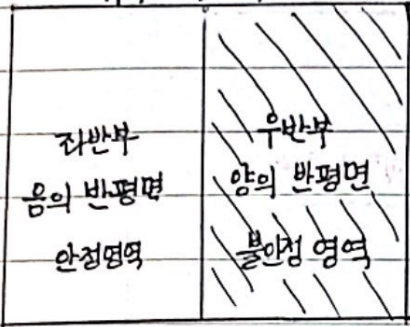 좌반부
음의 반평면
안정영역
우반부
양의 반평면
불안정 영역